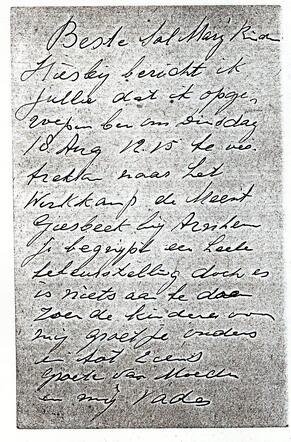 Beste Sal Marj Kind
Hierby bericht ik
jullie dat ik opge,
roepen ben om Dinsdag
18 Aug 12.15 te ver.
trekken naar het
Werkkamp de Meent
Giesbeek bij Arnhem
Je begrypt een heele
teleurstelling doch er
is niets aan te doen
Zoen de kinderen van
mij groet je ouders
en tot ziens
Groete van Moeder
en mij Vader